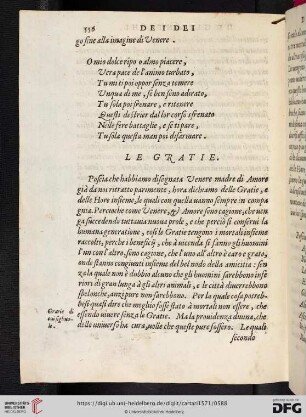 556 DE I DEI
go fine alla imagine di Venere.
O mio dolce ripo o almo piacere,
Vera pace de l'animo turbato,
Tu mi ti poi oppor senza temere
Unqua di me, se ben sono adirato,
Tu sola poi fermare, e ritenere
Questi destrier dal lor corso sfrenato
Ne le fere battaglie, e se ti pare,
Tu sola questa man poi disarmare.
LE GRATIE.
Poscia che habbiamo disegnata Venere madre di Amore
già da noi ritratto parimente, hora dichiamo delle Gratie, e
delle Hore insieme, le quali con quella uanno sempre in compa
gnia. Percioche come Venere, & Amore sono cagione, che uen
ga succedendo tuttauia noua prole, e che perciò si conserui la
humana generatione, così le Gratie tengono i mortali insieme
raccolti, perche i beneficij, che à uicenda si fanno gli huomini
l'un con l'altro, sono cagione, che l'uno all'altro è caro e grato,
onde stanno congiunti insieme del bel nodo della amicitia: sen
za la quale non è dubbio alcuno che gli huomini sarebbono infe
riori di gran lunga à gli altri animali, e le città diuerrebbono
spelonche, anzi pure non sarebbono. Per la qual cosa potreb-
besi quasi dire che meglio fosse stato à mortali non essere, che
essendo uiuere senza le Gratie. Ma la prouidenza diuina, che
dello uniuerso ha cura, uolle che queste pure fossero. Le quali
secondo
Gratie di
cui figliuo-
le.
UNIVERSITÄTS-
BIBLIOTHEK
HEIDELBERG
https://digi.ub.uni-heidelberg.de/diglit/cartari1571/0588
© Universitätsbibliothek Heidelberg
gefördert durch die
DFG